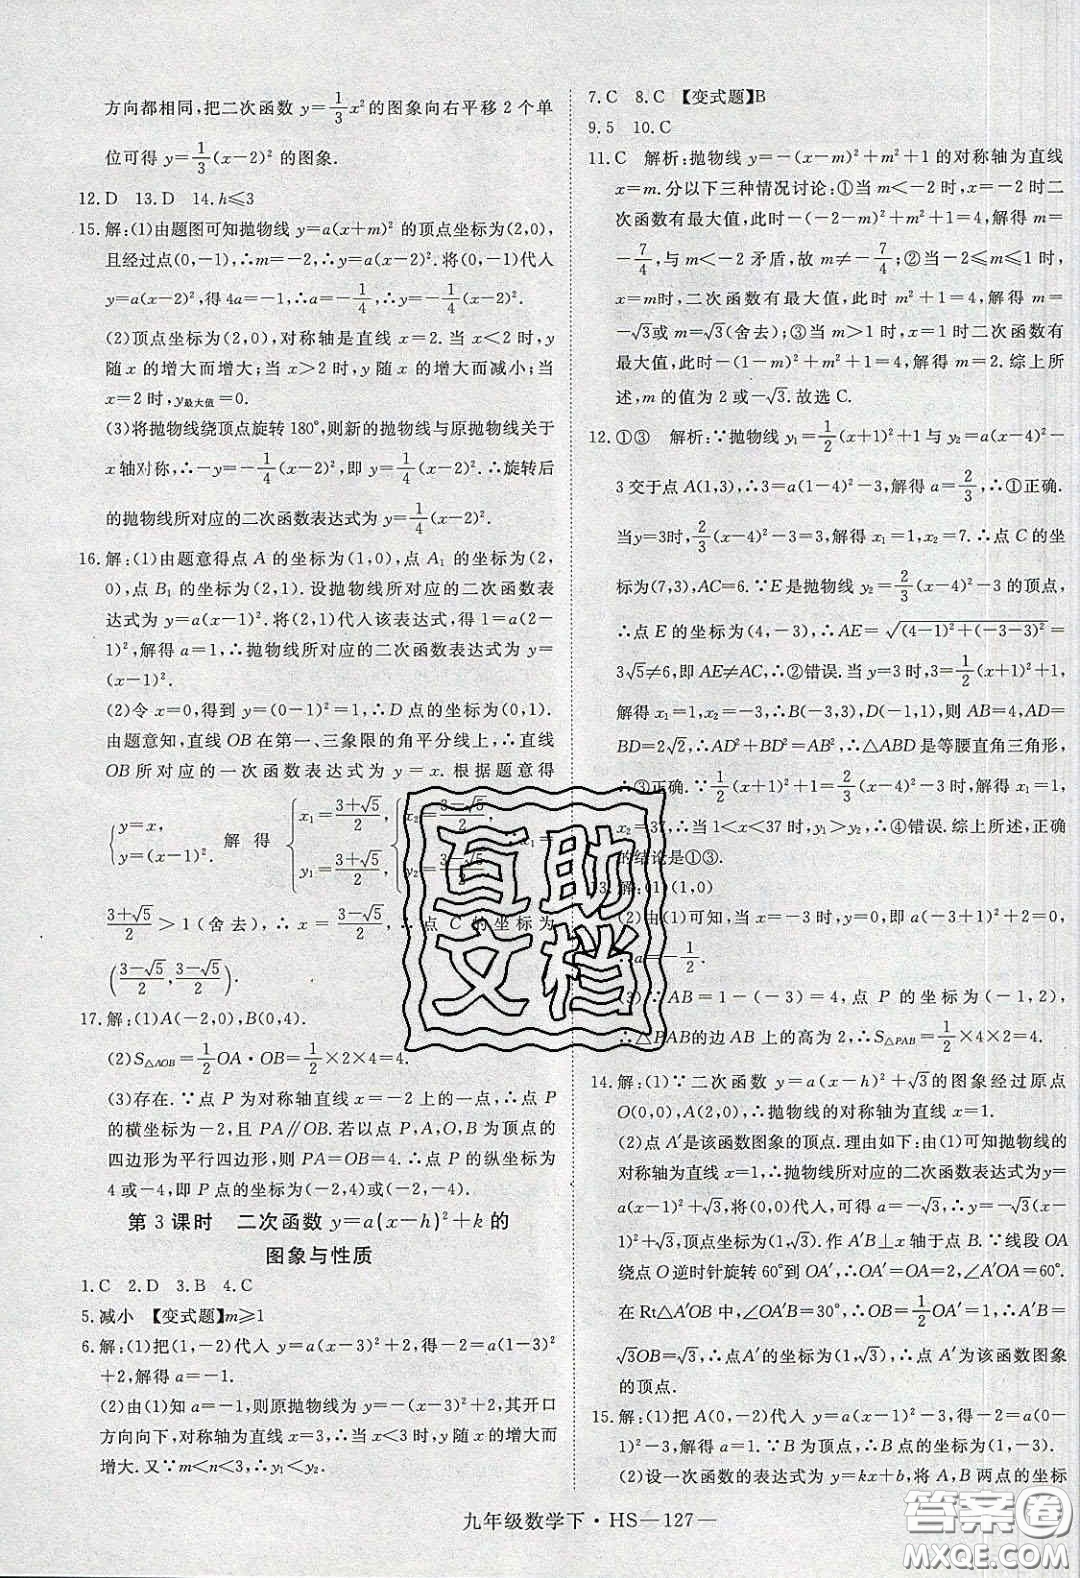 方向都相同,把二次函数 y=1/3x²的图象向右平移 2 个单
位可得 y=1/3(x-2)² 的图象.
12.D 13.D 14.h≤3
15.解:(1)由题图可知抛物线 y=a(x+m)² 的顶点坐标为(2,0),
且经过点(0,-1),∴m=-2,∴y=a(x-2)².将(0,-1)代入
y=a(x-2)²,得 4a=-1,∴a=-1/4,∴y=-1/4(x-2)².
(2)顶点坐标为(2,0),对称轴是直线 x=2.当 x<2 时,y
随 x 的增大而增大;当 x>2 时,y 随 x 的增大而减小;当
x=2 时,y最大值=0.
(3)将抛物线绕顶点旋转 180°,则新的抛物线与原抛物线关于
x 轴对称,∴-y=-1/4(x-2)²,即 y=1/4(x-2)².∴旋转后
的抛物线所对应的二次函数表达式为 y=1/4(x-2)².
16.解:(1)由题意得点 A 的坐标为(1,0),点 A₁ 的坐标为(2,
0),点 B₁ 的坐标为(2,1).设抛物线所对应的二次函数表
达式为 y=a(x-1)².将(2,1)代入该表达式,得 1=a(2-
1)²,解得 a=1,∴抛物线所对应的二次函数表达式为 y=
(x-1)².
(2)令 x=0,得到 y=(0-1)²=1,∴D 点的坐标为(0,1).
由题意知,直线 OB 在第一、三象限的角平分线上,∴直线
OB 所对应的一次函数表达式为 y=x.根据题意得
{y=x, y=(x-1)². 解得 {x₁=(3+√5)/2, y₁=(3+√5)/2, {x₂=(3-√5)/2, y₂=(3-√5)/2. ∵x₁=
(3+√5)/2>1(舍去),∴x=(3-√5)/2,∴点 C 的坐标为
((3-√5)/2,(3-√5)/2).
17.解:(1)A(-2,0),B(0,4).
(2)S△AOB=1/2OA·OB=1/2×2×4=4.
(3)存在.∵点 P 为对称轴直线 x=-2 上的一点,∴点 P
的横坐标为-2,且 PA∥OB.若以点 P,A,O,B 为顶点的
四边形为平行四边形,则 PA=OB=4.∴点 P 的纵坐标为
4 或-4,即 P 点的坐标为(-2,4)或(-2,-4).
第 3 课时 二次函数 y=a(x-h)²+k 的
图象与性质
1.C 2.D 3.B 4.C
5.减小 【变式题】m≥1
6.解:(1)把(1,-2)代入 y=a(x-3)²+2,得-2=a(1-3)²
+2,解得 a=-1.
(2)由(1)知 a=-1,则原抛物线为 y=-(x-3)²+2,其开口
方向向下,对称轴为直线 x=3,∴当 x<3 时,y 随 x 的增大而
增大.又∵m<n<3,∴y₁<y₂.
7.C 8.C 【变式题】B
9.5 10.C
11.C 解析:抛物线 y=-(x-m)²+m²+1 的对称轴为直线
x=m.分以下三种情况讨论:①当 m<-2 时,x=-2 时二
次函数有最大值,此时-(-2-m)²+m²+1=4,解得 m=
-7/4,与 m<-2 矛盾,故 m≠-7/4;②当-2≤m≤1 时,
x=m时,二次函数有最大值,此时 m²+1=4,解得 m=
-√3或 m=√3(舍去);③当 m>1 时,x=1时二次函数有
最大值,此时-(1-m)²+m²+1=4,解得 m=2.综上所
述,m 的值为 2 或-√3.故选 C.
12.①③ 解析:∵抛物线 y₁=1/2(x+1)²+1 与 y₂=a(x-4)²-
3 交于点 A(1,3),∴3=a(1-4)²-3,解得 a=2/3,∴①正确.
当y=3时,2/3(x-4)²-3=3,解得 x₁=1,x₂=7.∴点 C 的坐
标为(7,3),AC=6.∵E 是抛物线 y₂=2/3(x-4)²-3 的顶点,
∴点 E 的坐标为(4,-3),∴AE=√(4-1)²+(-3-3)²=
3√5≠6,即 AE≠AC,∴②错误.当 y=3 时,3=1/2(x+1)²+1,
解得 x₁=1,x₂=-3,∴B(-3,3),D(-1,1),则 AB=4,AD=
BD=2√2,∴AD²+BD²=AB²,∴△ABD 是等腰直角三角形,
∴③正确.∵1/2(x+1)²+1=2/3(x-4)²-3 时,解得 x₁=1,
x₂=37,∴当 1<x<37 时,y₁>y₂,∴④错误.综上所述,正确
的结论是①③.
13.解:(1)(1,0)
(2)由(1)可知,当 x=-3 时,y=0,即 a(-3+1)²+2=0,
∴a=-1/2.
(3)∵AB=1-(-3)=4,点 P 的坐标为(-1,2),
∴△PAB的边 AB 上的高为 2,∴S△PAB=1/2×4×2=4.
14.解:(1)∵二次函数 y=a(x-h)²+√3的图象经过原点
O(0,0),A(2,0),∴抛物线的对称轴为直线 x=1.
(2)点 A′是该函数图象的顶点.理由如下:由(1)可知抛物线的
对称轴为直线 x=1,∴抛物线所对应的二次函数表达式为 y=
a(x-1)²+√3,将(0,0)代入,得 0=a+√3,解得 a=-√3,∴y=
-√3(x-1)²+√3,∴顶点坐标为(1,√3).作 A′B⊥x 轴于点 B.∵线段 OA
绕点 O 逆时针旋转 60°到 OA′,∴OA′=OA=2,∠A′OA=60°.
在 Rt△A′OB 中,∠OA′B=30°,∴OB=1/2OA′=1,∴A′B=
√3OB=√3,∴点 A′的坐标为(1,√3),∴点 A′为该函数图象
的顶点.
15.解:(1)把 A(0,-2)代入 y=a(x-1)²-3,得-2=a(0-
1)²-3,解得 a=1.∵B 为顶点,∴B 点的坐标为(1,-3).
(2)设一次函数的表达式为 y=kx+b,将 A,B 两点的坐标
九年级数学下·HS—127—
互助
文档
答案圈
MXQE.COM